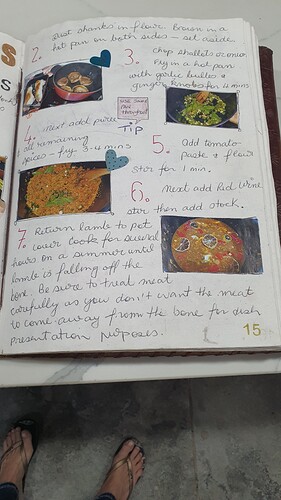 2. Dust shanks in flour. Brown in a
hot pan on both sides - set aside
3. Chop shallots or onion
Fry in a hot pan
with garlic bulbs &
ginger knobs for 4 mins
TIP
4. Next add puree
all remaining
spices - fry 3-4 mins
5. Add tomato
paste & flour
Stir for 1 min.
6. Next add Red Wine
stir then add stock.
7. Return lamb to pot
cover cook for several
hours on a summer until
lamb is falling off the
bone. Be sure to treat meat
carefully as you don't want the meat
to come away from the bone for dish
presentation purposes.
15
S
S